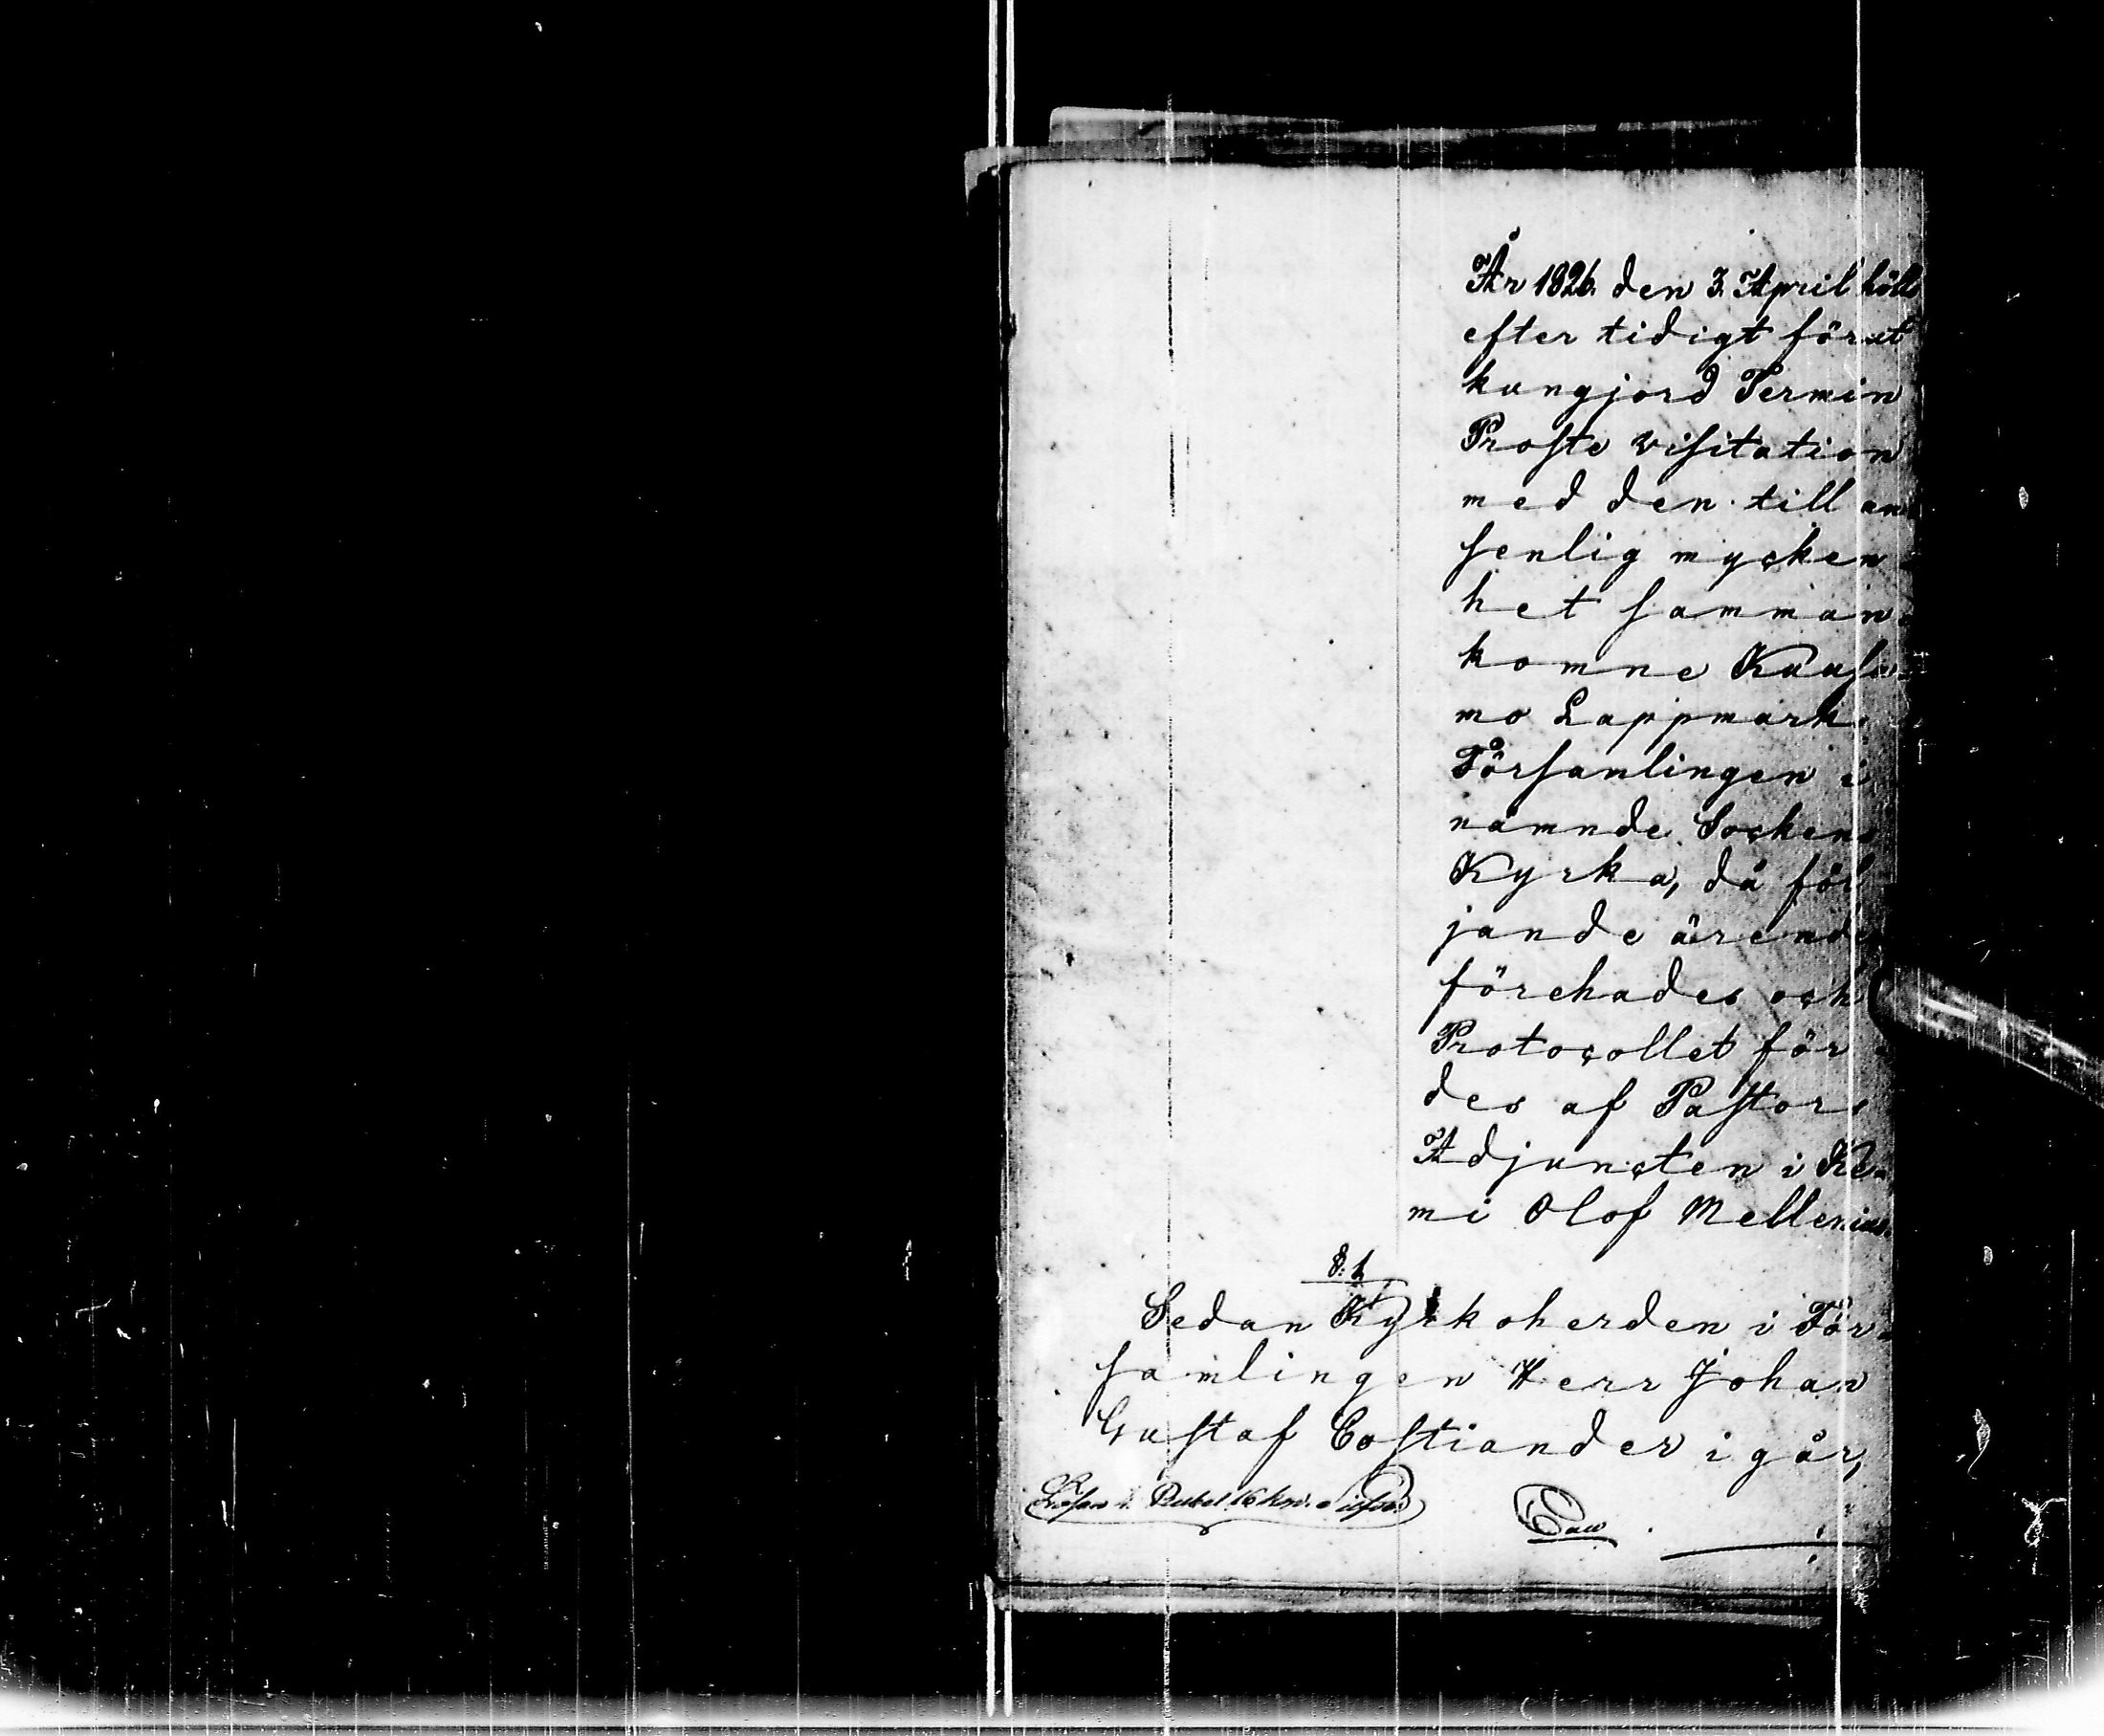 År 1826. den 3. April hölls
efter tidigt förut
kungjord Termin
Proste visitation
med den till an-
senlig mycken-
het samman-
komne Kuusa-
mo Lappmarks
Församlingen i
nämnde Sockens
Kyrka, då föl
jande ärende
förehades och
Protocollet för-
des af Pastors
Adjuncten i Ke-
mi Olof Mellenius.
§. 1
Sedan Kyrkoherden i För-
samlingen Herr Johan
Gustaf Costiander i går,
16